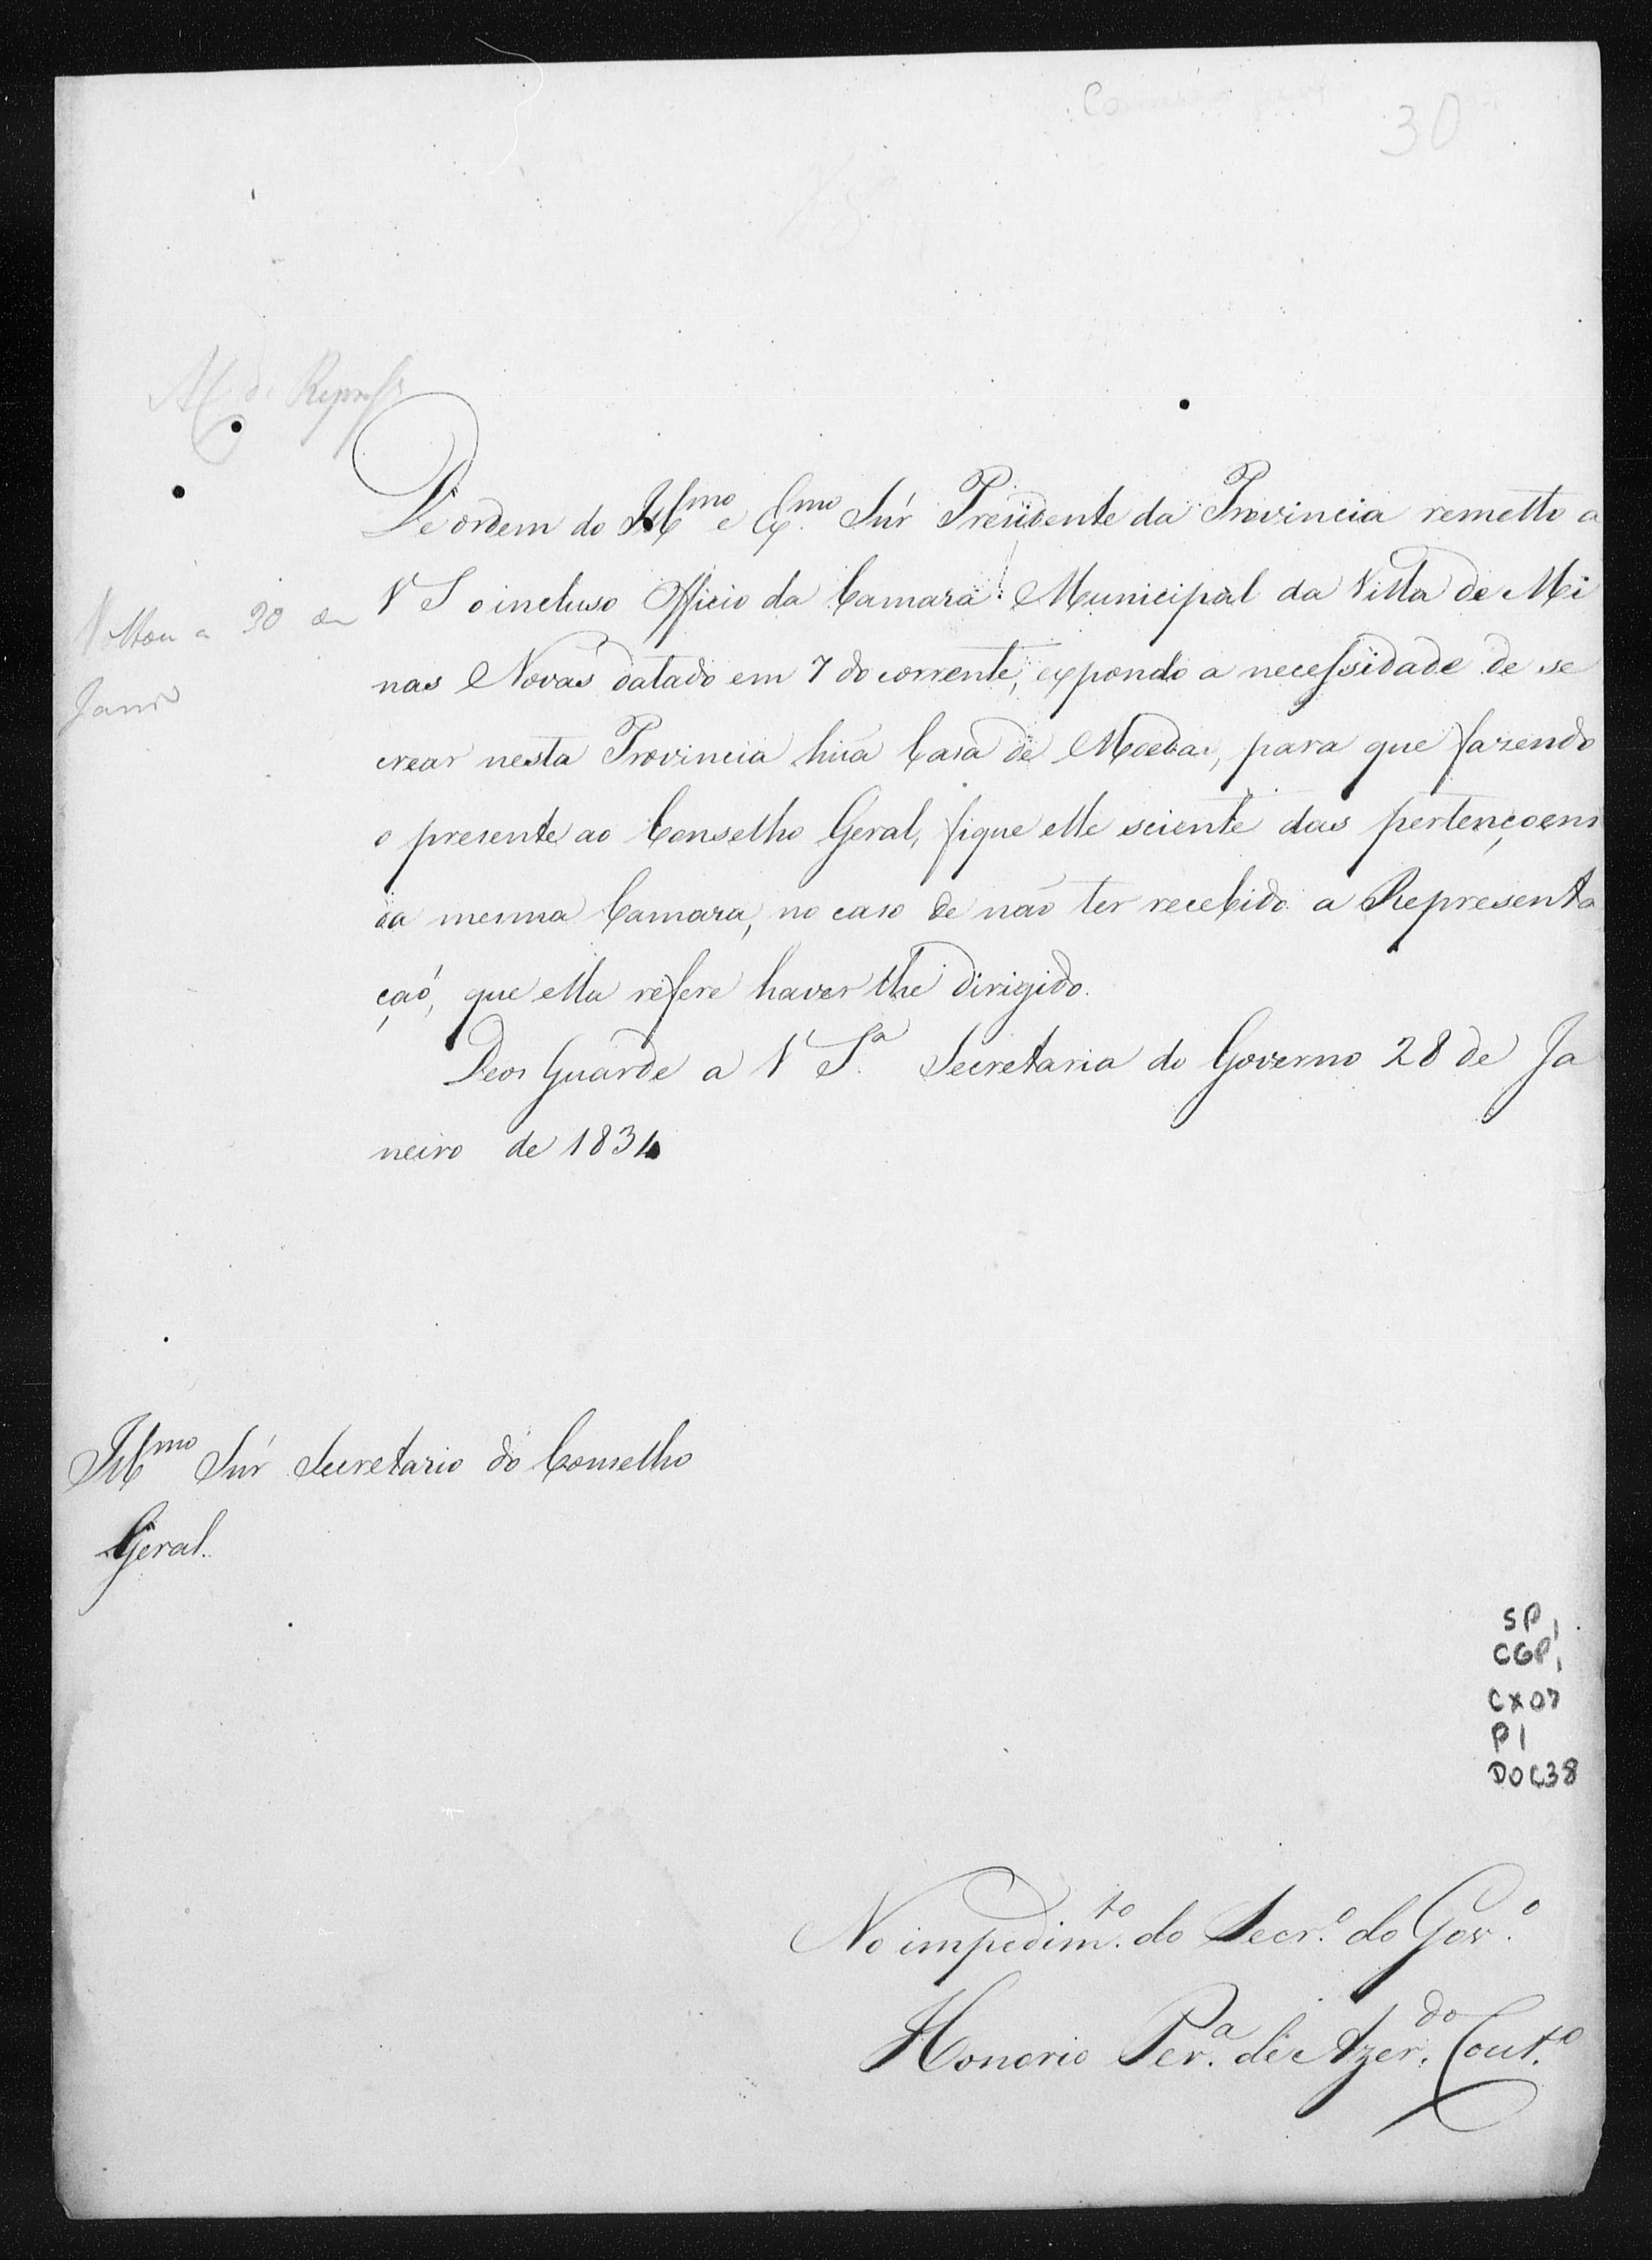 30
De ordem do Illmo e Exmo Snr Presidente da Provincia remetto a
V S o incluso Officio da Camara Municipal da Villa de Mi
nas Novas datado em 7 do corrente, expondo a necessidade de se
crear nesta Provincia hua Casa de Moeda, para que fazendo
o presente ao Conselho Geral, fique elle sciente das pertençoens
da mesma Camara, no caso de não ter recebido a Representa
çaõ, que ella refere haver lhe dirigido.
Voltou a 30 de
Janro
Deos Guarde a V Sª Secretaria do Governo 28 de Ja
neiro de 1834
Illmo Snr Secretario do Conselho
Geral.
SP,
CGP,
CX07
P1
DOC38
No impedim.to do Secr.º do Gov.º
Honorio Per.ª de Azer.do Cout.º